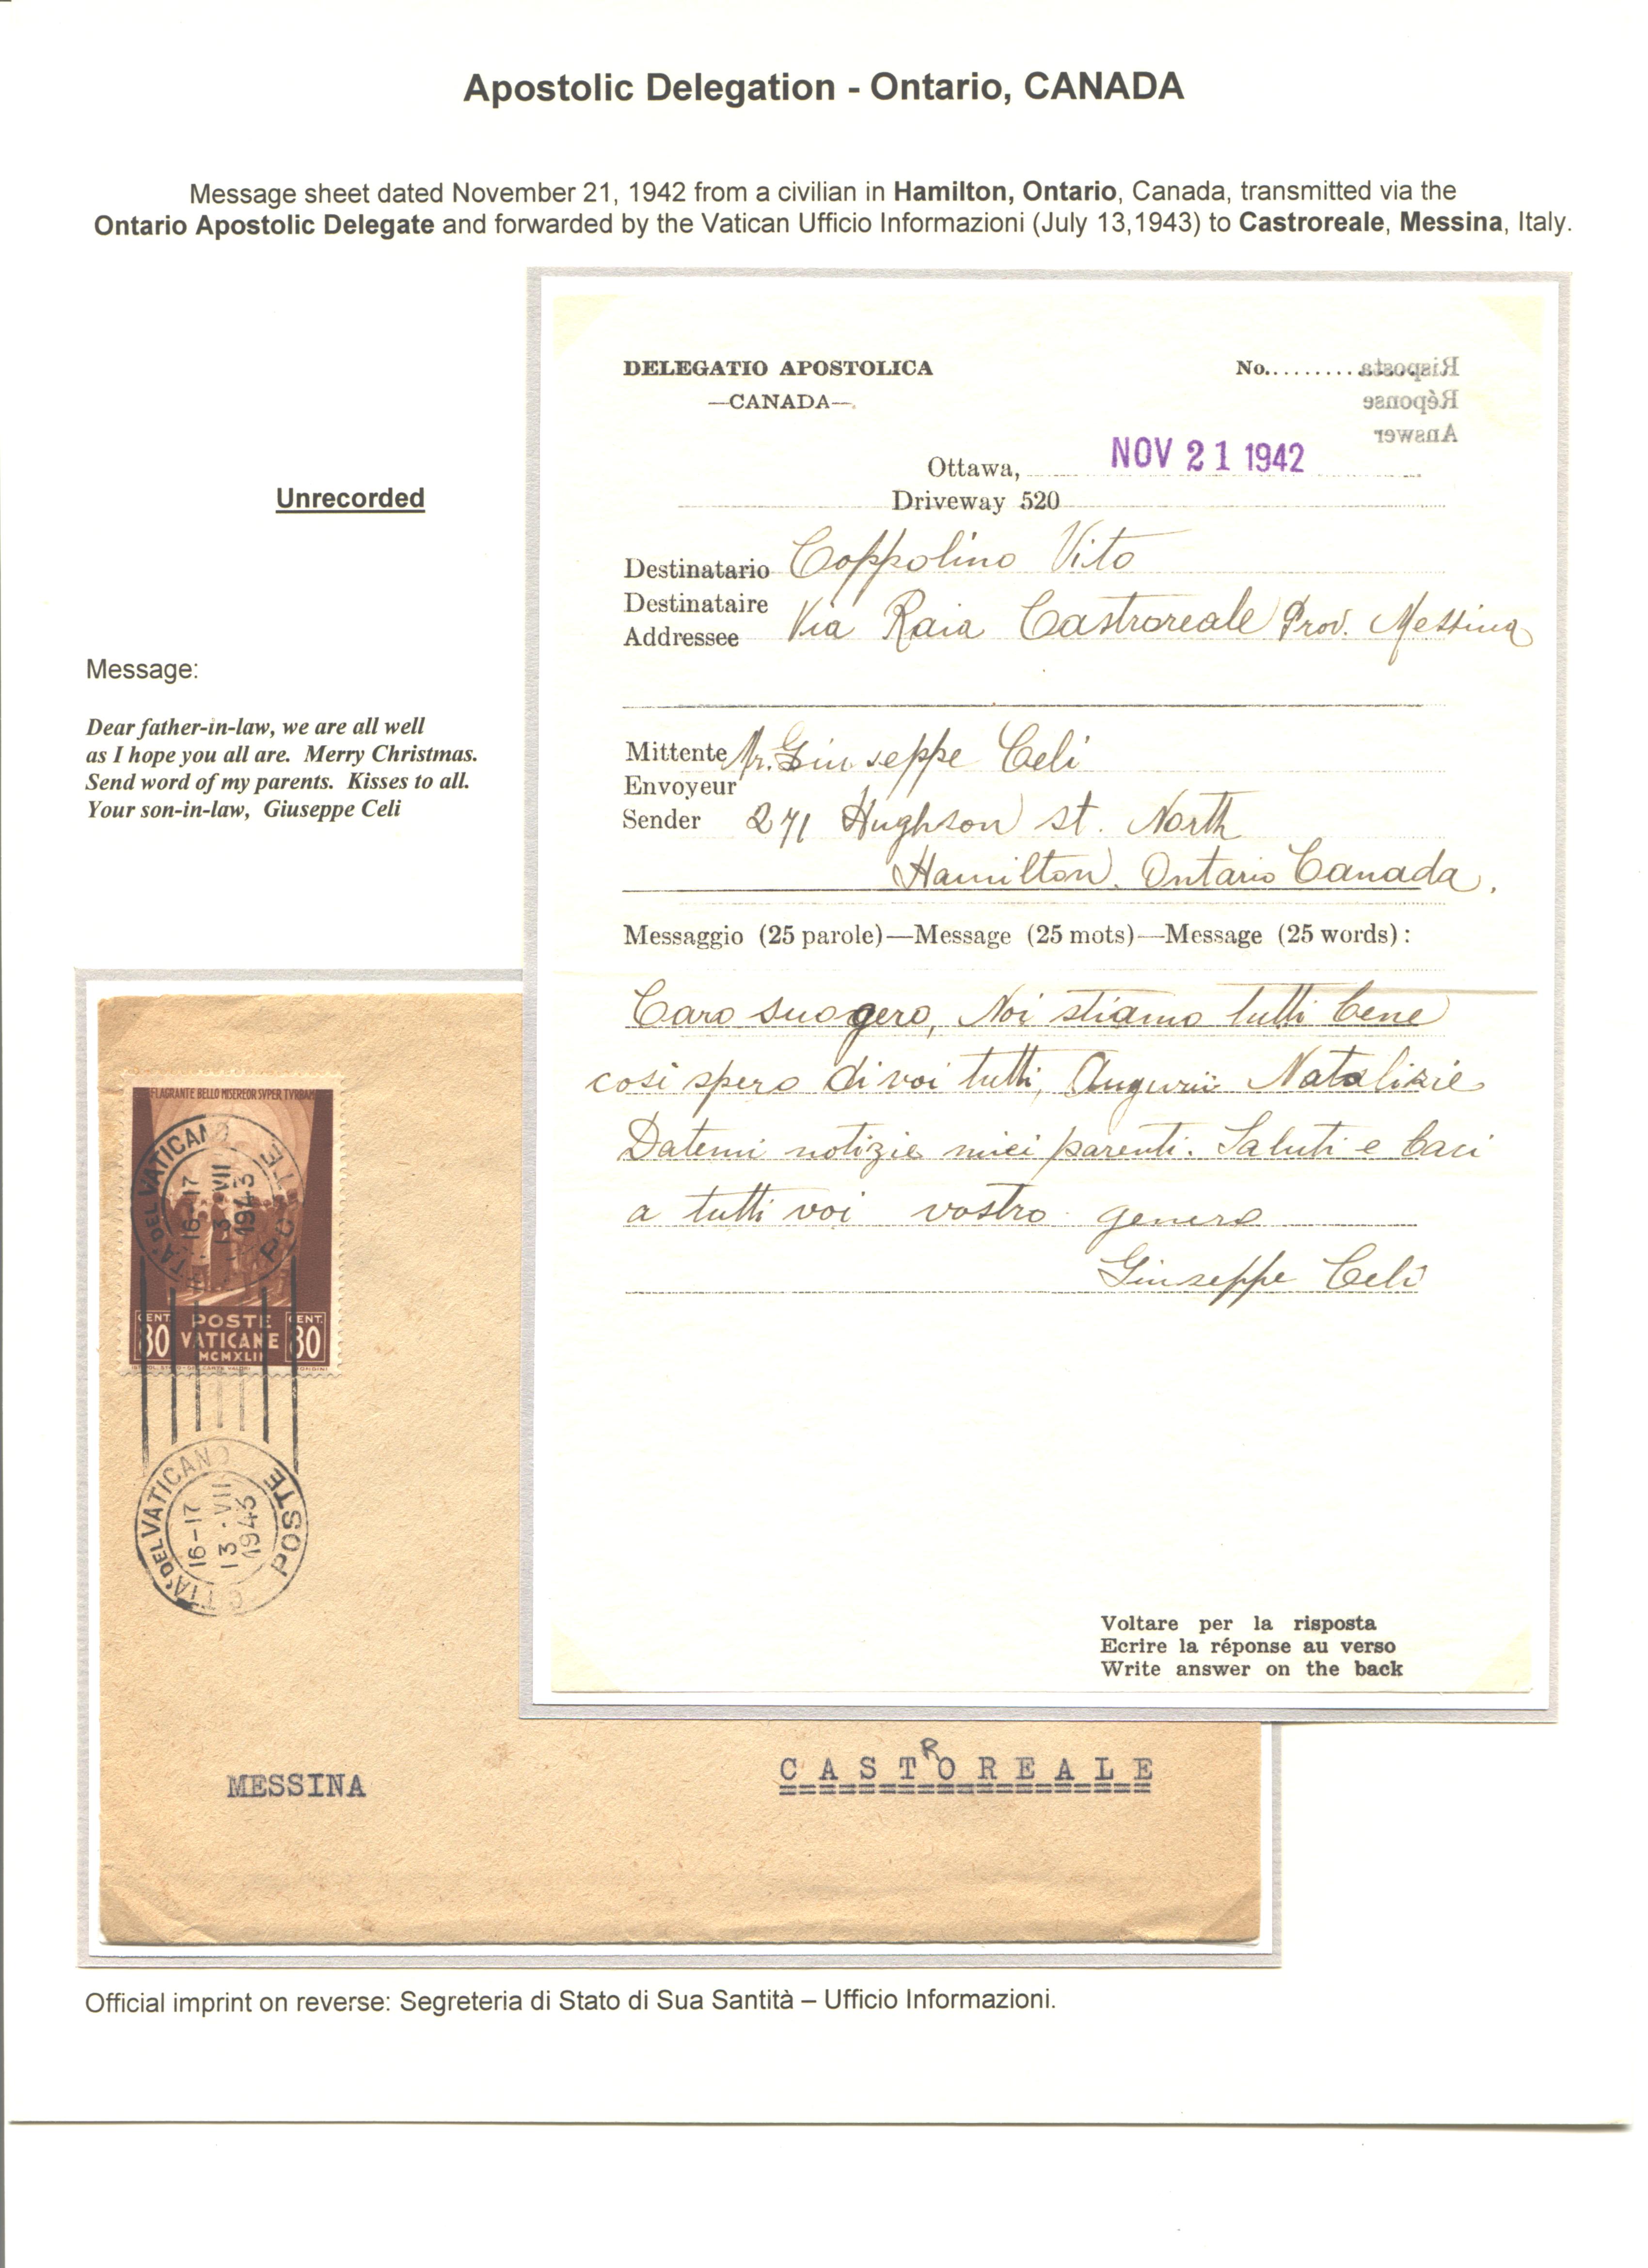 Apostolic Delegation - Ontario, CANADA
Message sheet dated November 21, 1942 from a civilian in Hamilton, Ontario, Canada, transmitted via the
Ontario Apostolic Delegate and forwarded by the Vatican Ufficio Informazioni (July 13,1943) to Castroreale, Messina, Italy.
Unrecorded
Message:
Dear father-in-law, we are all well
as I hope you all are. Merry Christmas.
Send word of my parents. Kisses to all.
Your son-in-law, Giuseppe Celi
DELEGATIO APOSTOLICA
—CANADA—
No..........
Risposta
Réponse
Answer
Ottawa, NOV 21 1942
Driveway 520
Destinatario Coppolino Vito
Destinataire
Addressee Via Raia Castroreale Prov. Messina
Mittente Mr. Giuseppe Celi
Envoyeur
Sender 271 Hughson st. North
Hamilton. Ontario Canada.
Messaggio (25 parole)—Message (25 mots)—Message (25 words):
Caro suogero, Noi stiamo tutti bene
cosi spero di voi tutti, Augurii Natalizie
Datemi notizie miei parenti. Saluti e baci
a tutti voi vostro genero
Giuseppe Celi
Voltare per la risposta
Ecrire la réponse au verso
Write answer on the back
FLAGRANTE BELLO MISEREOR SVPER TVRBAM
CENT. 80 POSTE VATICANE CENT. 80
MCMXLII
CITTA' DEL VATICANO POSTE
16-17
13·VII
1943
CITTA' DEL VATICANO POSTE
16-17
13·VII
1943
MESSINA
CASTROREALE
Official imprint on reverse: Segreteria di Stato di Sua Santità – Ufficio Informazioni.